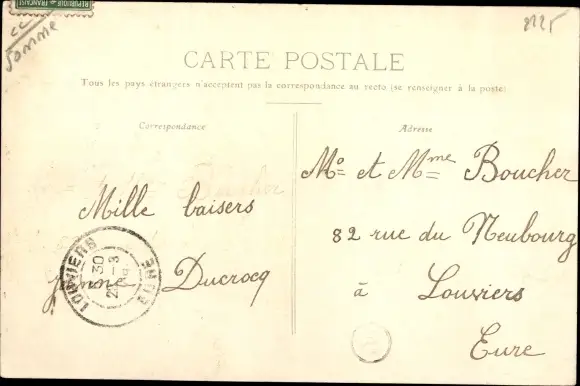 REPUBLIQUE FRANÇAISE
Somme
CARTE POSTALE
Tous les pays étrangers n'acceptent pas la correspondance au recto (se renseigner à la poste)
Correspondance
Mille baisers
Jeanne Ducrocq
LOUVIERS
EURE
30
Adresse
Mr et Mme Boucher
82 rue du Neubourg
à Louviers
Eure